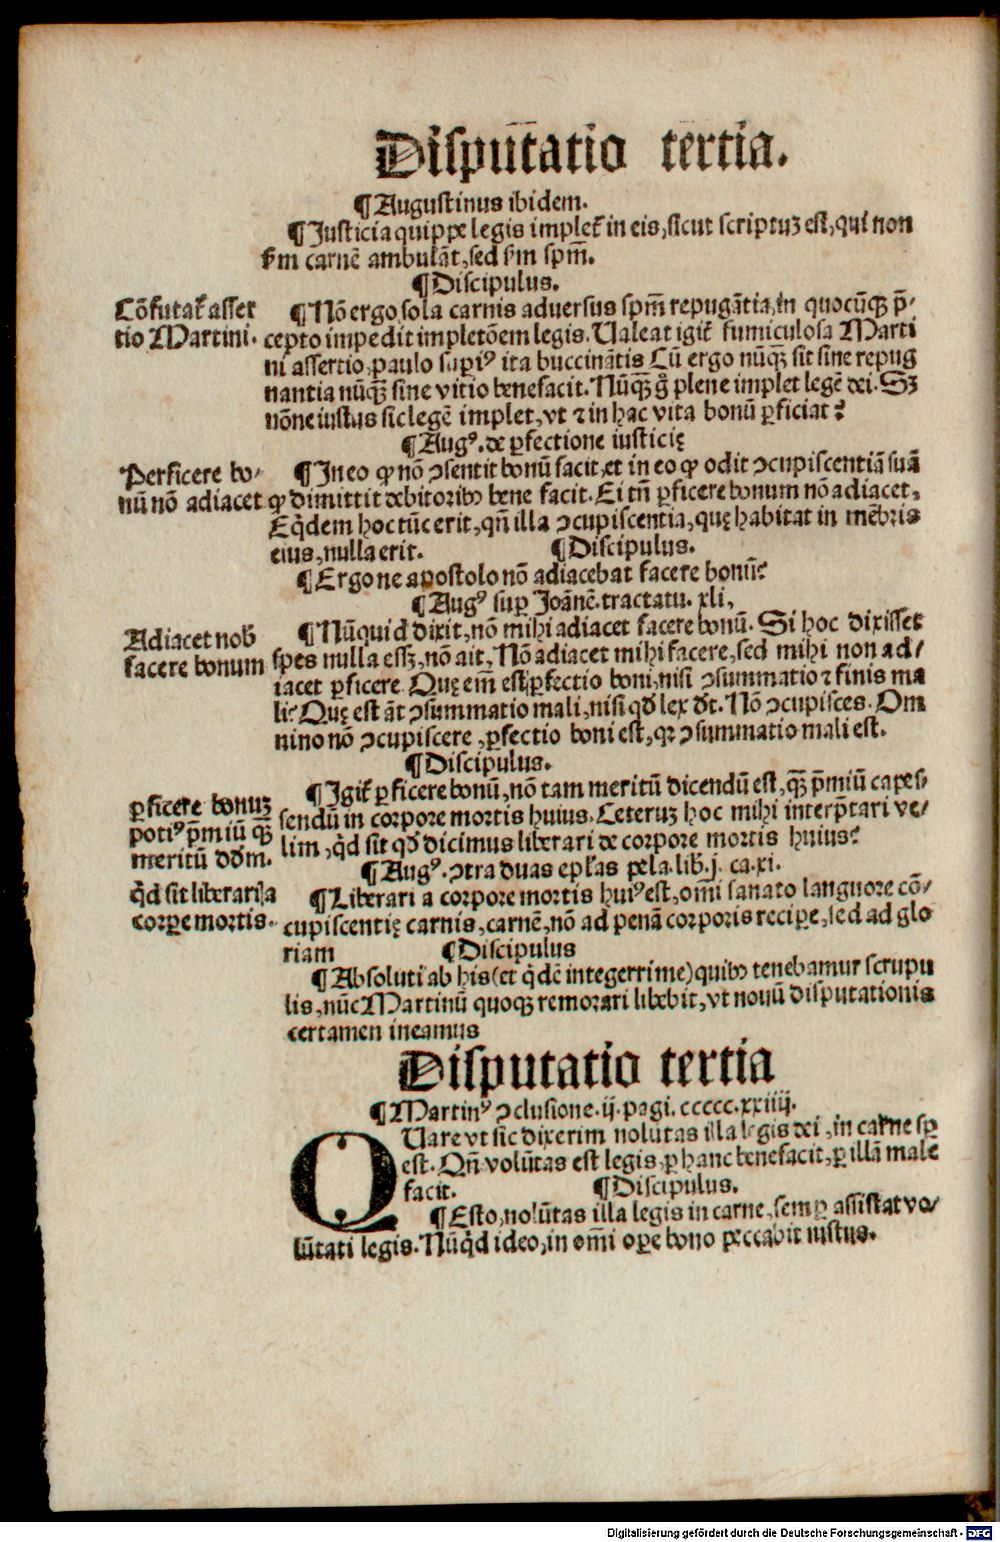 Disputatio tertia.
¶Augustinus ibidem.
¶Justicia quippe legis impletꝰ in eis, sicut scriptuꝫ est, qui non
ẜm carnē ambulāt, sed ẜm spm̄.
¶Discipulus.
Cōfutatꝭ asser
tio Martini.
¶Nō ergo sola carnis adversus spm̄ repugātia, in quocūqꝫ p̄-
cepto impedit impletōem legis. Ualeat igit̄ fumiculosa Marti
ni assertio, paulo supiꝰ ita buccinātis Cū ergo nūqꝫ sit sine repug
nantia nūqꝫ sine vitio benefacit. Nūqꝫ g̊ plene implet legē dei. Sꝫ
nōne iustus sic legē implet, vt ⁊ in hac vita bonū ꝑficiat?
¶Augꝰ. de ꝑfectione iusticię
Perficere bo-
nū nō adiacet
¶In eo ꝙ nō ꝯsentit bonū facit, et in eo ꝙ odit ꝯcupiscentiā suā
ꝙ dimittit debitoribꝰ bene facit. Ei tn̄ ꝑficere bonum nō adiacet,
Eq̇dem hoc tūc erit, qn̄ illa ꝯcupiscentia, quę habitat in mēbris
eius, nulla erit. ¶Discipulus.
¶Ergo ne apostolo nō adiacebat facere bonū?
¶Augꝰ suꝑ Joānē. tractatu. xli,
Adiacet nob̄
facere bonum
¶Nūquid dixit, nō mihi adiacet facere bonū. Si hoc dixisset
spes nulla essꝫ, nō ait, Nō adiacet mihi facere, sed mihi non ad-
iacet ꝑficere. Quę em̄ est ꝑfectio boni, nisi ꝯsummatio ⁊ finis ma
li? Quę est āt ꝯsummatio mali, nisi qd̄ lex dt̄. Nō ꝯcupisces. Om
nino nō ꝯcupiscere, ꝑfectio boni est, qꝛ ꝯsummatio mali est.
¶Discipulus.
ꝑficere bonuꝫ
potiꝰ p̄miū qꝫ̄
meritū dd̄m.
¶Igit̄ ꝑficere bonū, nō tam meritū dicendū est, qꝫ̄ p̄miū capes-
sendū in corpore mortis huius. Ceteruꝫ hoc mihi interp̄tari ve-
lim, q̇d sit qd̄ dicimus liberari de corpore mortis huius?
¶Augꝰ. ꝯtra duas epl̄as pela. lib. j. ca. xi.
q̇d sit liberari a
corꝑe mortis.
¶Liberari a corpore mortis huiꝰ est, omī sanato languore cō-
cupiscentię carnis, carnē, nō ad penā corporis reciꝑe, sed ad glo
riam ¶Discipulus
¶Absoluti ab his (et q̇dē integerrime) quibꝰ tenebamur scrupu
lis, nūc Martinū quoqꝫ remorari libebit, vt nouū disputationis
certamen ineamus
Disputatio tertia
¶Martinꝰ ꝯclusione. ij. pagi. ccccc. xxiiij.
QUare vt sic dixerim nolūtas illa legis dei, in carne sꝑ
est. Qn̄ volūntas est legis, ꝑ hanc benefacit, ꝑ illā male
facit. ¶Discipulus.
¶Esto, nolūtas illa legis in carne, semꝑ assistat vo-
lūtati legis. Nūq̇d ideo, in omī oꝑe bono peccabit iustus.
Digitalisierung gefördert durch die Deutsche Forschungsgemeinschaft - DFG